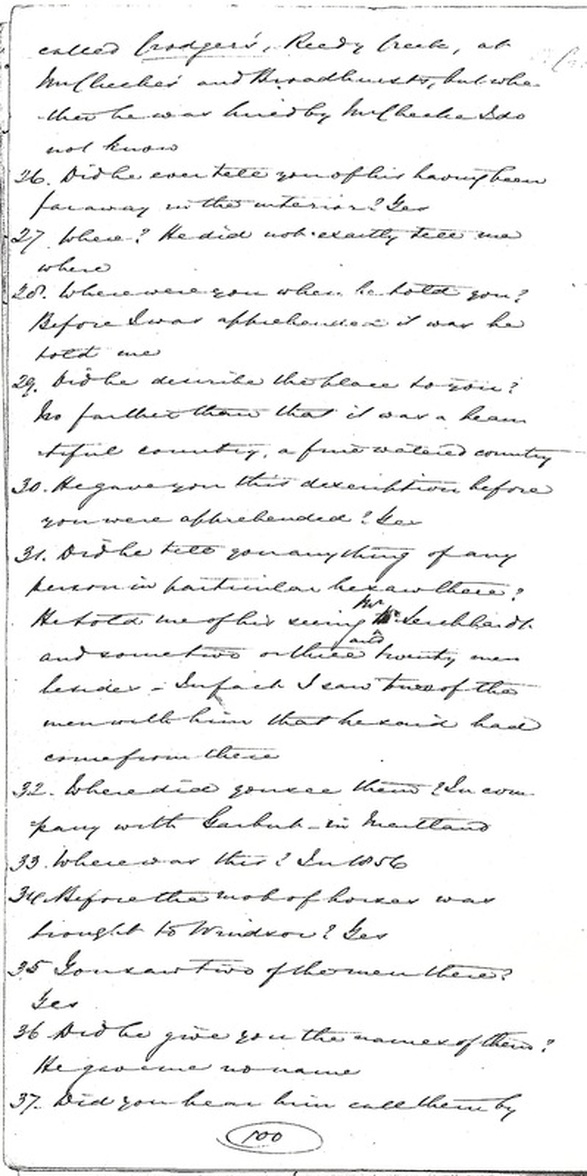 called Crodgers, Reedy Creek, at
McCheeke's and Broadhursts, but whe-
ther he was hired by McCheeke I do
not know
26. Did he ever tell you of his having been
far away in the interior? Yes
27 Where? He did not exactly tell me
where
28. Where were you when he told you?
Before I was apprehended it was he
told me
29. Did he describe the place to you?
No farther than that it was a beau
tiful country, a fine watered country
30. He gave you this description before
you were apprehended? Yes
31. Did he tell you anything of any
person in particular he saw there?
He told me of his seeing Mr Leichhardt
and some two or three and twenty men
besides - In fact I saw two of the
men with him that he said had
come from there
32. Where did you see them? In com-
pany with Garbut - in Maitland
33. When was this? In 1856
34 Before the mob of horses was
brought to Windsor? Yes
35 You saw two of the men there?
Yes
36 Did he give you the names of them?
He gave me no name
37. Did you hear him call them by
100